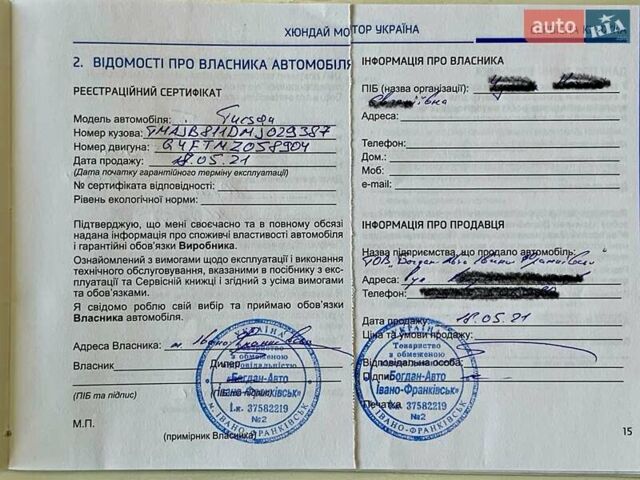 ХЮНДАЙ МОТОР УКРАЇНА
auto RIA
2. ВІДОМОСТІ ПРО ВЛАСНИКА АВТОМОБІЛЯ
РЕЄСТРАЦІЙНИЙ СЕРТИФІКАТ
Модель автомобіля:
Номер кузова: TMAJB811DMJ029387
Номер двигуна: G4FTMZ058904
Дата продажу: 18.05.21
(Дата початку гарантійного терміну експлуатації)
№ сертифіката відповідності:
Рівень екологічної норми:
Підтверджую, що мені своєчасно та в повному обсязі
надана інформація про споживчі властивості автомобіля
і гарантійні обов'язки Виробника.
Ознайомлений з вимогами щодо експлуатації і виконання
технічного обслуговування, вказаними в посібнику з екс-
плуатації та Сервісній книжці і згідний з усіма вимогами
та обов'язками.
Я свідомо роблю свій вибір та приймаю обов'язки
Власника автомобіля.
Адреса Власника: м
Власник
Дилер
(ПІБ та підпис)
М.П.
(примірник Власника)
УКРАЇНА
Товариство
з обмеженою
відповідальністю
"Богдан-Авто
Івано-Франківськ"
І.к. 37582219
№2
м. ІВАНО-ФРАНКІВСЬК
ІНФОРМАЦІЯ ПРО ВЛАСНИКА
ПІБ (назва організації):
Адреса:
Телефон:
Дом.:
Моб:
e-mail:
ІНФОРМАЦІЯ ПРО ПРОДАВЦЯ
Назва підприємства, що продало автомобіль:
ТОВ "Богдан Авто Івано Франківськ"
Адреса:
Телефон:
Дата продажу: 18.05.21
Ціна та умови продажу:
Відповідальна особа:
Підпис
Печатка
УКРАЇНА
Товариство
з обмеженою
відповідальністю
"Богдан-Авто
Івано-Франківськ"
І.к. 37582219
№2
м. ІВАНО-ФРАНКІВСЬК
15